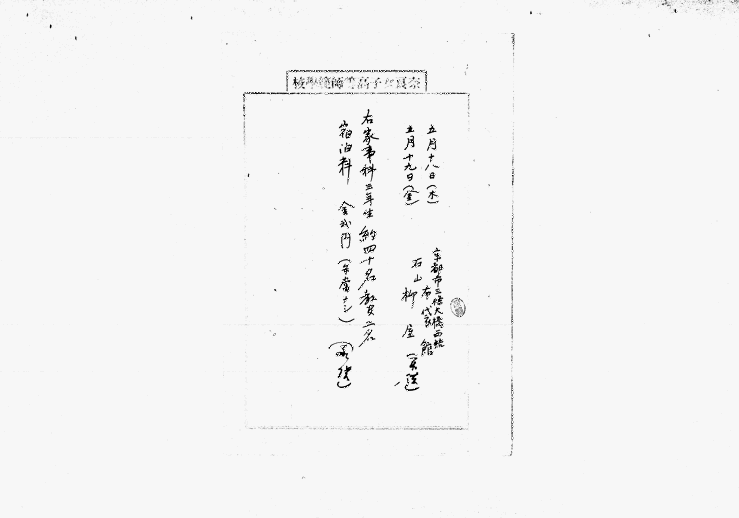 奈良女子高等師範學校
五月十八日(木)
京都市三條大橋西詰
布袋館
五月十九日(金)
石山柳屋
右家事科三年生約四十名教官二名
宿泊料 金貮円(弁当ナシ)